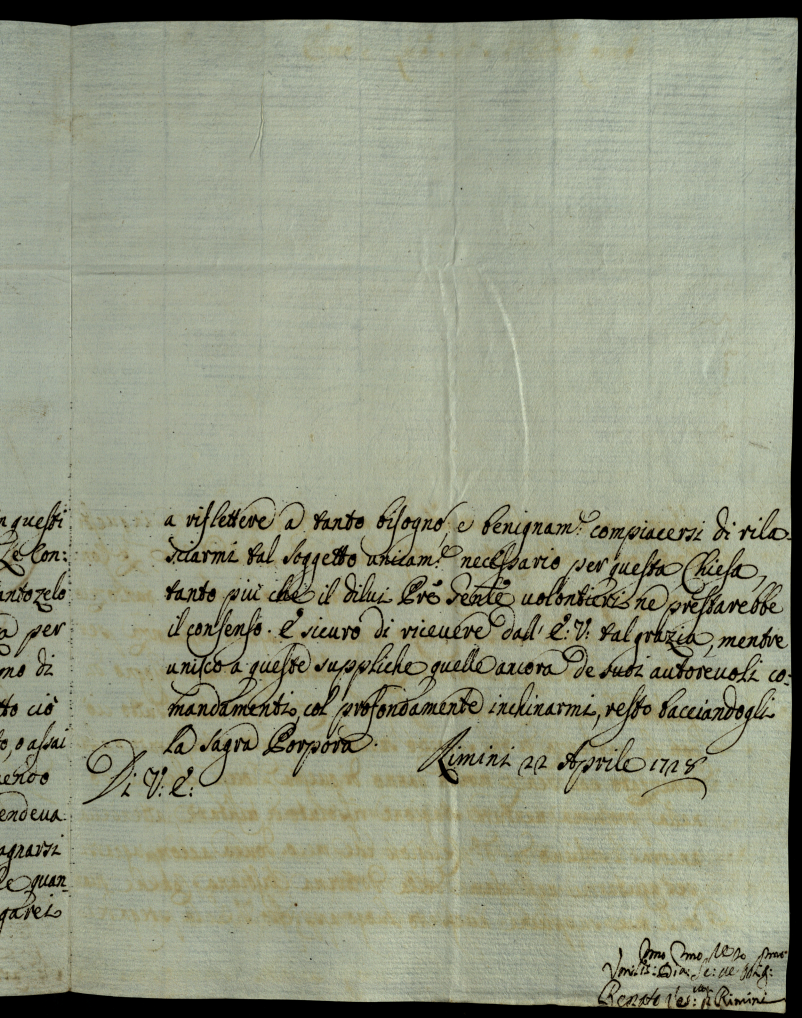 n questi
Le Con:
anto zelo
a per
mo di
tto ciò
to, o assai
endo
endeva
agnarsi
le quan
garei
a riflettere a tanto bisogno, e benignam.e compiacersi di rila-
sciarmi tal soggetto unicam.e necessario per questa Chiesa,
tanto più che il dilui Pre Sente volontieri ne prestarebbe
il consenso. E sicuro di ricevere dall' E: V: tal grazia, mentre
unisco a queste suppliche quelle ancora de suoi autorevoli co-
mandamenti, col profondamente inchinarmi, resto bacciandogli
la sagra Porpora.
Rimini 22 Aprile 1728
Di V: E:
Renato Ves: di Rimini